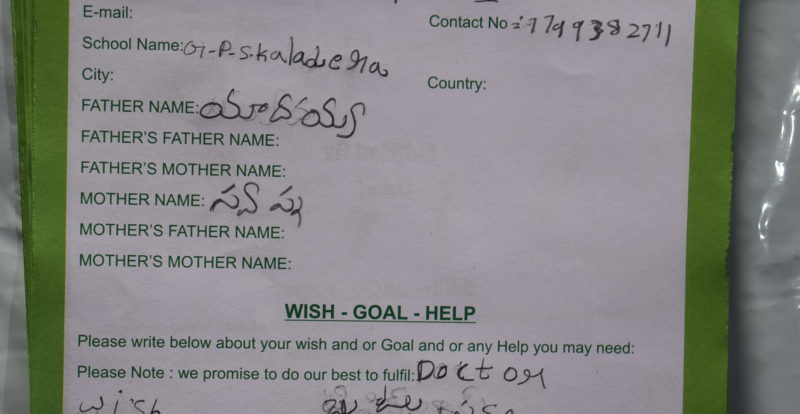 E-mail:
Contact No : 7799382711
School Name: G-P-S.Kaladera
City:
Country:
FATHER NAME: యాదయ్య
FATHER'S FATHER NAME:
FATHER'S MOTHER NAME:
MOTHER NAME: స్వప్న
MOTHER'S FATHER NAME:
MOTHER'S MOTHER NAME:
WISH - GOAL - HELP
Please write below about your wish and or Goal and or any Help you may need:
Please Note : we promise to do our best to fulfil: Doctor
wish